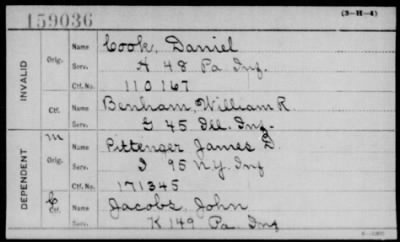 159036
(3-H-4)
INVALID
Orig.
Name Cook, Daniel
Serv. A 48 Pa Inf.
Ctf. No. 110167
Ctf.
Name Benham, William R.
Serv. G 45 Ill. Inf.
DEPENDENT
m
Orig.
Name Pittenger James D.
Serv. I 95 N.Y. Inf
Ctf. No. 171345
C
Ctf.
Name Jacobs, John
Serv. K 149 Pa. Inf